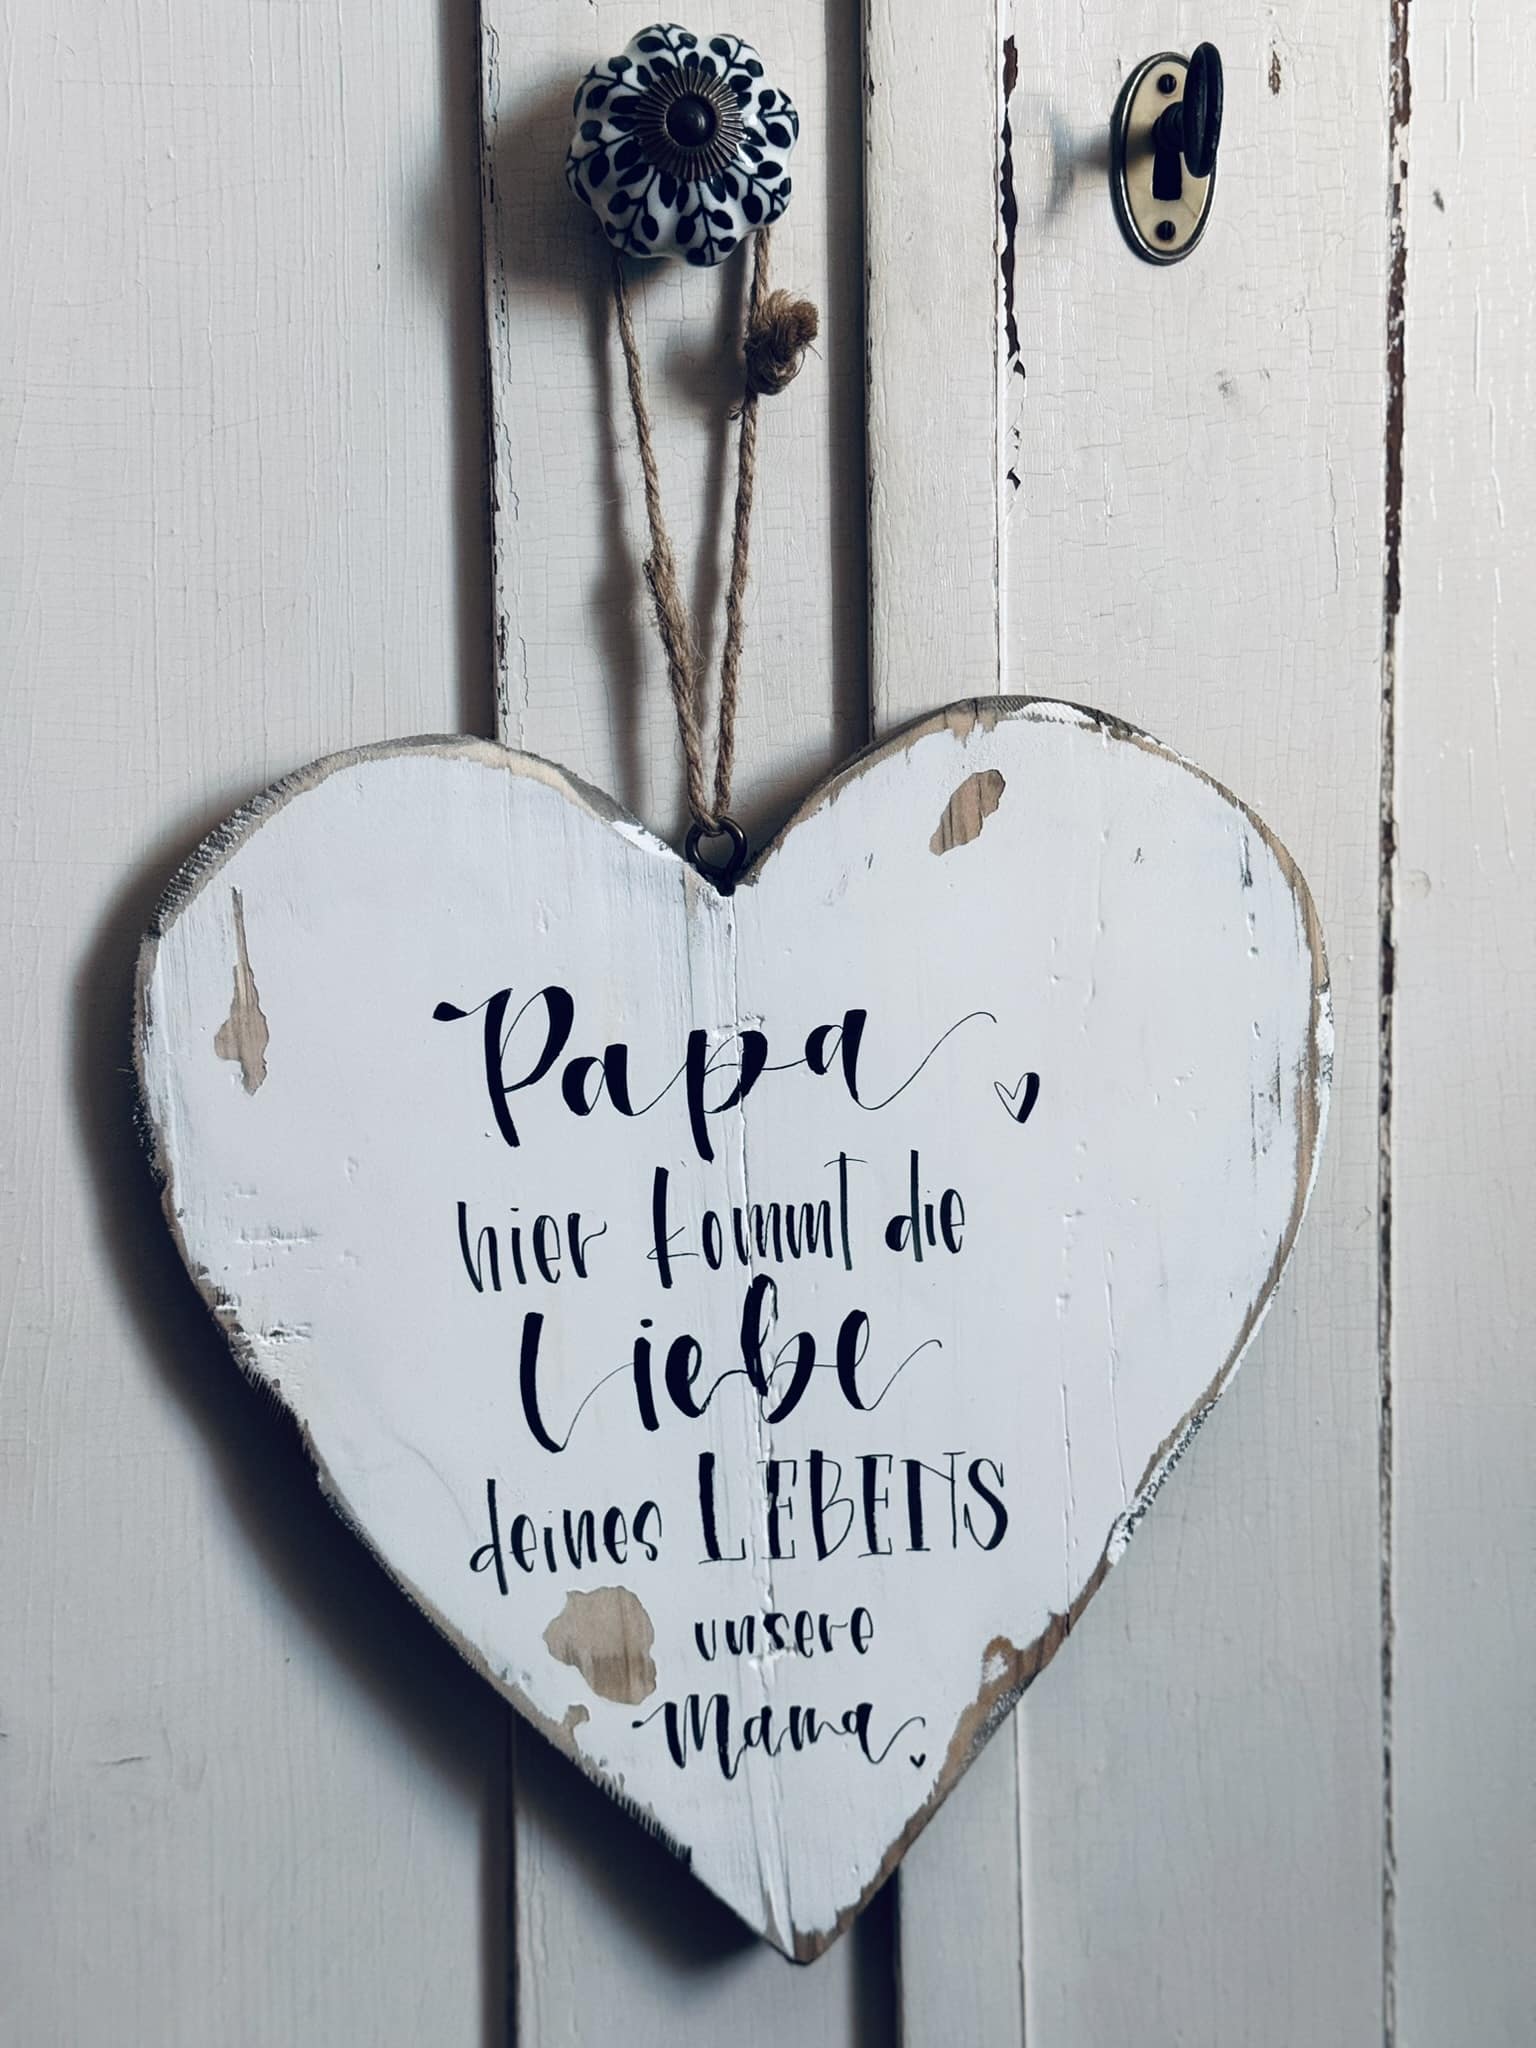 Papa
hier kommt die
Liebe
deines LEBENS
unsere
Mama.